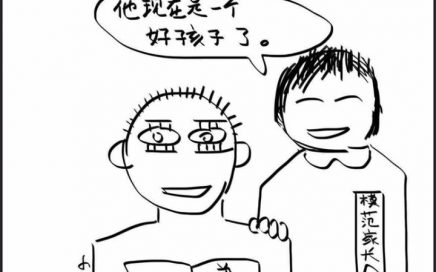 他现在是一个
好孩子了。
模范家长